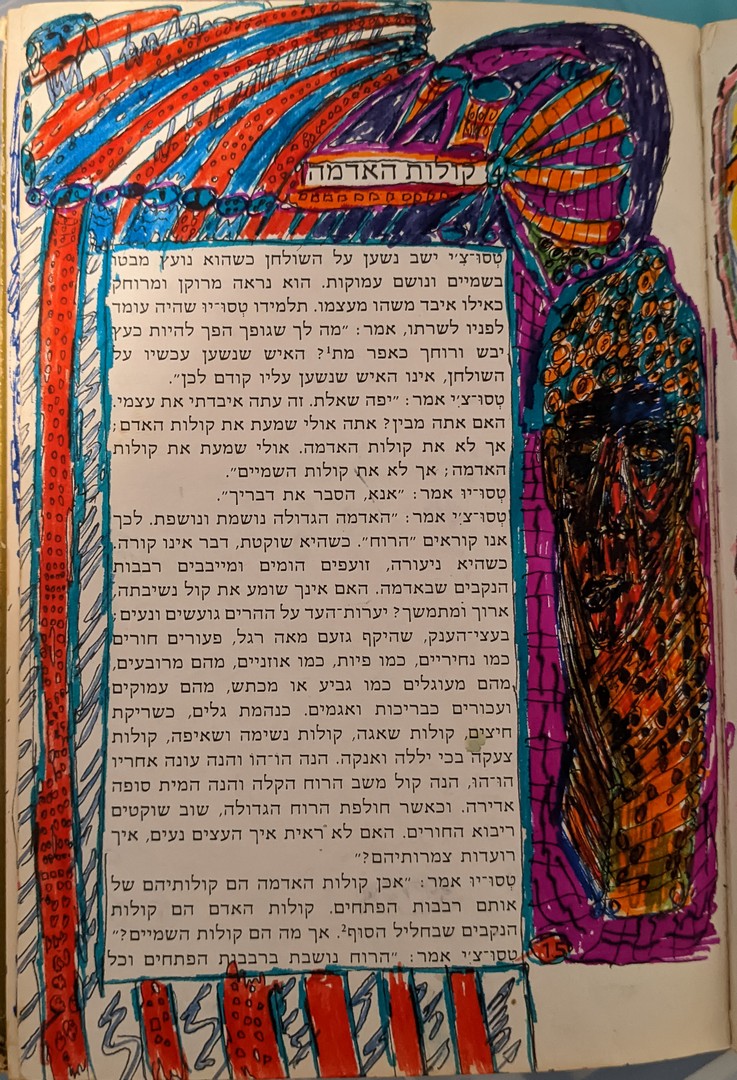 קולות האדמה
טְסוּ־צִ׳י ישב נשען על השולחן כשהוא נועץ מבטו
בשמיים ונושם עמוקות. הוא נראה מרוקן ומרוחק
כאילו איבד משהו מעצמו. תלמידו טְסוּ־יוּ שהיה עומד
לפניו לשרתו, אמר: ״מה לך שגופך הפך להיות כעץ
יבש ורוחך כאפר מת¹? האיש שנשען עכשיו על
השולחן, אינו האיש שנשען עליו קודם לכן״.
טְסוּ־צִ׳י אמר: ״יפה שאלת. זה עתה איבדתי את עצמי.
האם אתה מבין? אתה אולי שמעת את קולות האדם;
אך לא את קולות האדמה. אולי שמעת את קולות
האדמה; אך לא את קולות השמיים״.
טְסוּ־יוּ אמר: ״אנא, הסבר את דבריך״.
טְסוּ־צִ׳י אמר: ״האדמה הגדולה נושמת ונושפת. לכך
אנו קוראים ״הרוח״. כשהיא שוקטת, דבר אינו קורה.
כשהיא ניעורה, זועפים הומים ומייבבים רבבות
הנקבים שבאדמה. האם אינך שומע את קול נשיבתה,
ארוך ומתמשך? יערות־העד על ההרים גועשים ונעים;
בעצי־הענק, שהיקף גזעם מאה רגל, פעורים חורים
כמו נחיריים, כמו פיות, כמו אוזניים, מהם מרובעים,
מהם מעוגלים כמו גביע או מכתש, מהם עמוקים
ועכורים כבריכות ואגמים. כנהמת גלים, כשריקת
חיצים, קולות שאגה, קולות נשימה ושאיפה, קולות
צעקה בכי יללה ואנקה. הנה הו־הו והנה עונה אחריו
הו־הו, הנה קול משב הרוח הקלה והנה המית סופה
אדירה. וכאשר חולפת הרוח הגדולה, שוב שוקטים
ריבוא החורים. האם לא ראית איך העצים נעים, איך
רועדות צמרותיהם?״
טְסוּ־יוּ אמר: ״אכן קולות האדמה הם קולותיהם של
אותם רבבות הפתחים. קולות האדם הם קולות
הנקבים שבחליל הסוף². אך מה הם קולות השמיים?״
טְסוּ־צִ׳י אמר: ״הרוח נושבת ברבבות הפתחים וכל
15